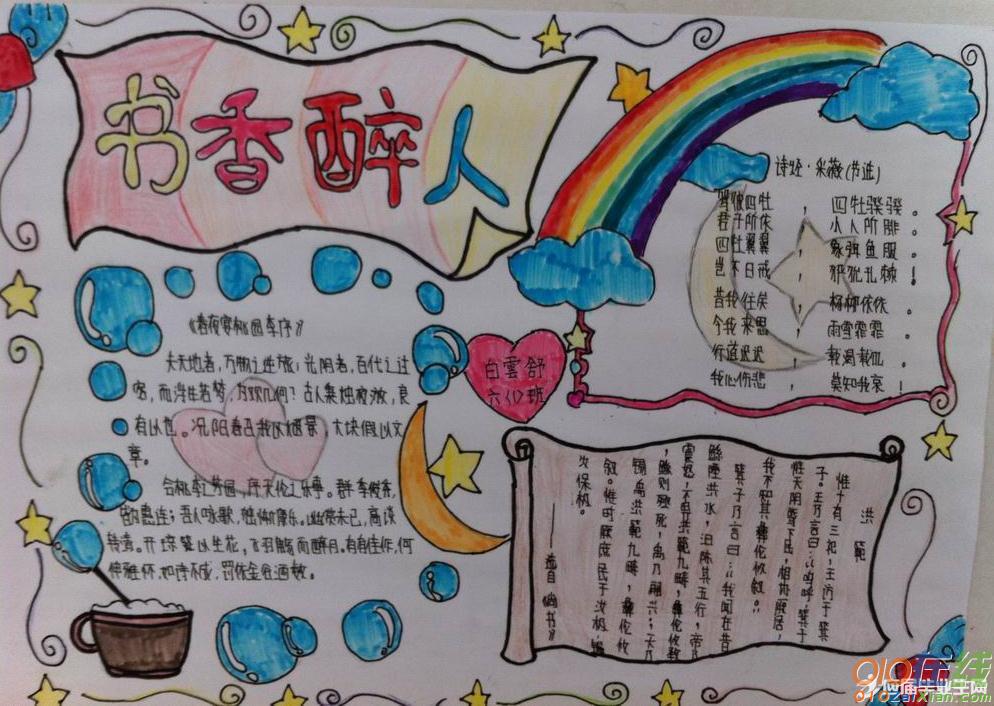 书香醉人
诗经·采薇(节选)
驾彼四牡，四牡骙骙。
君子所依，小人所腓。
四牡翼翼，象弭鱼服。
岂不日戒，猃狁孔棘！
昔我往矣，杨柳依依。
今我来思，雨雪霏霏。
行道迟迟，载渴载饥。
我心伤悲，莫知我哀！
《春夜宴桃园李序》
夫天地者，万物之逆旅；光阴者，百代之过
客，而浮生若梦，为欢几何？古人秉烛夜游，良
有以也。况阳春召我以烟景，大块假以文
章。
会桃李之芳园，序天伦之乐事。群季俊秀，
皆为惠连；吾人咏歌，独惭康乐。幽赏未已，高谈
转清。开琼筵以坐花，飞羽觞而醉月。有有佳作，何
伸雅怀，如诗不成，罚依金谷酒数。
白雲舒
六班
洪範
惟十有三祀，王访于箕
子。王乃言曰：“呜呼！箕子
惟天阴骘下民，相协厥居，
我不知其彝伦攸叙。”
箕子乃言曰：“我闻在昔
鲧堙洪水，汩陈其五行，帝乃
震怒，不畀洪範九畴，彝伦攸斁
鲧则殛死，禹乃嗣兴，天乃
锡禹洪範九畴，彝伦攸
叙。惟时厥庶民于汝极，锡
汝保极。
——选自《尚书》
010在线
应届毕业生网
010zaixian.com